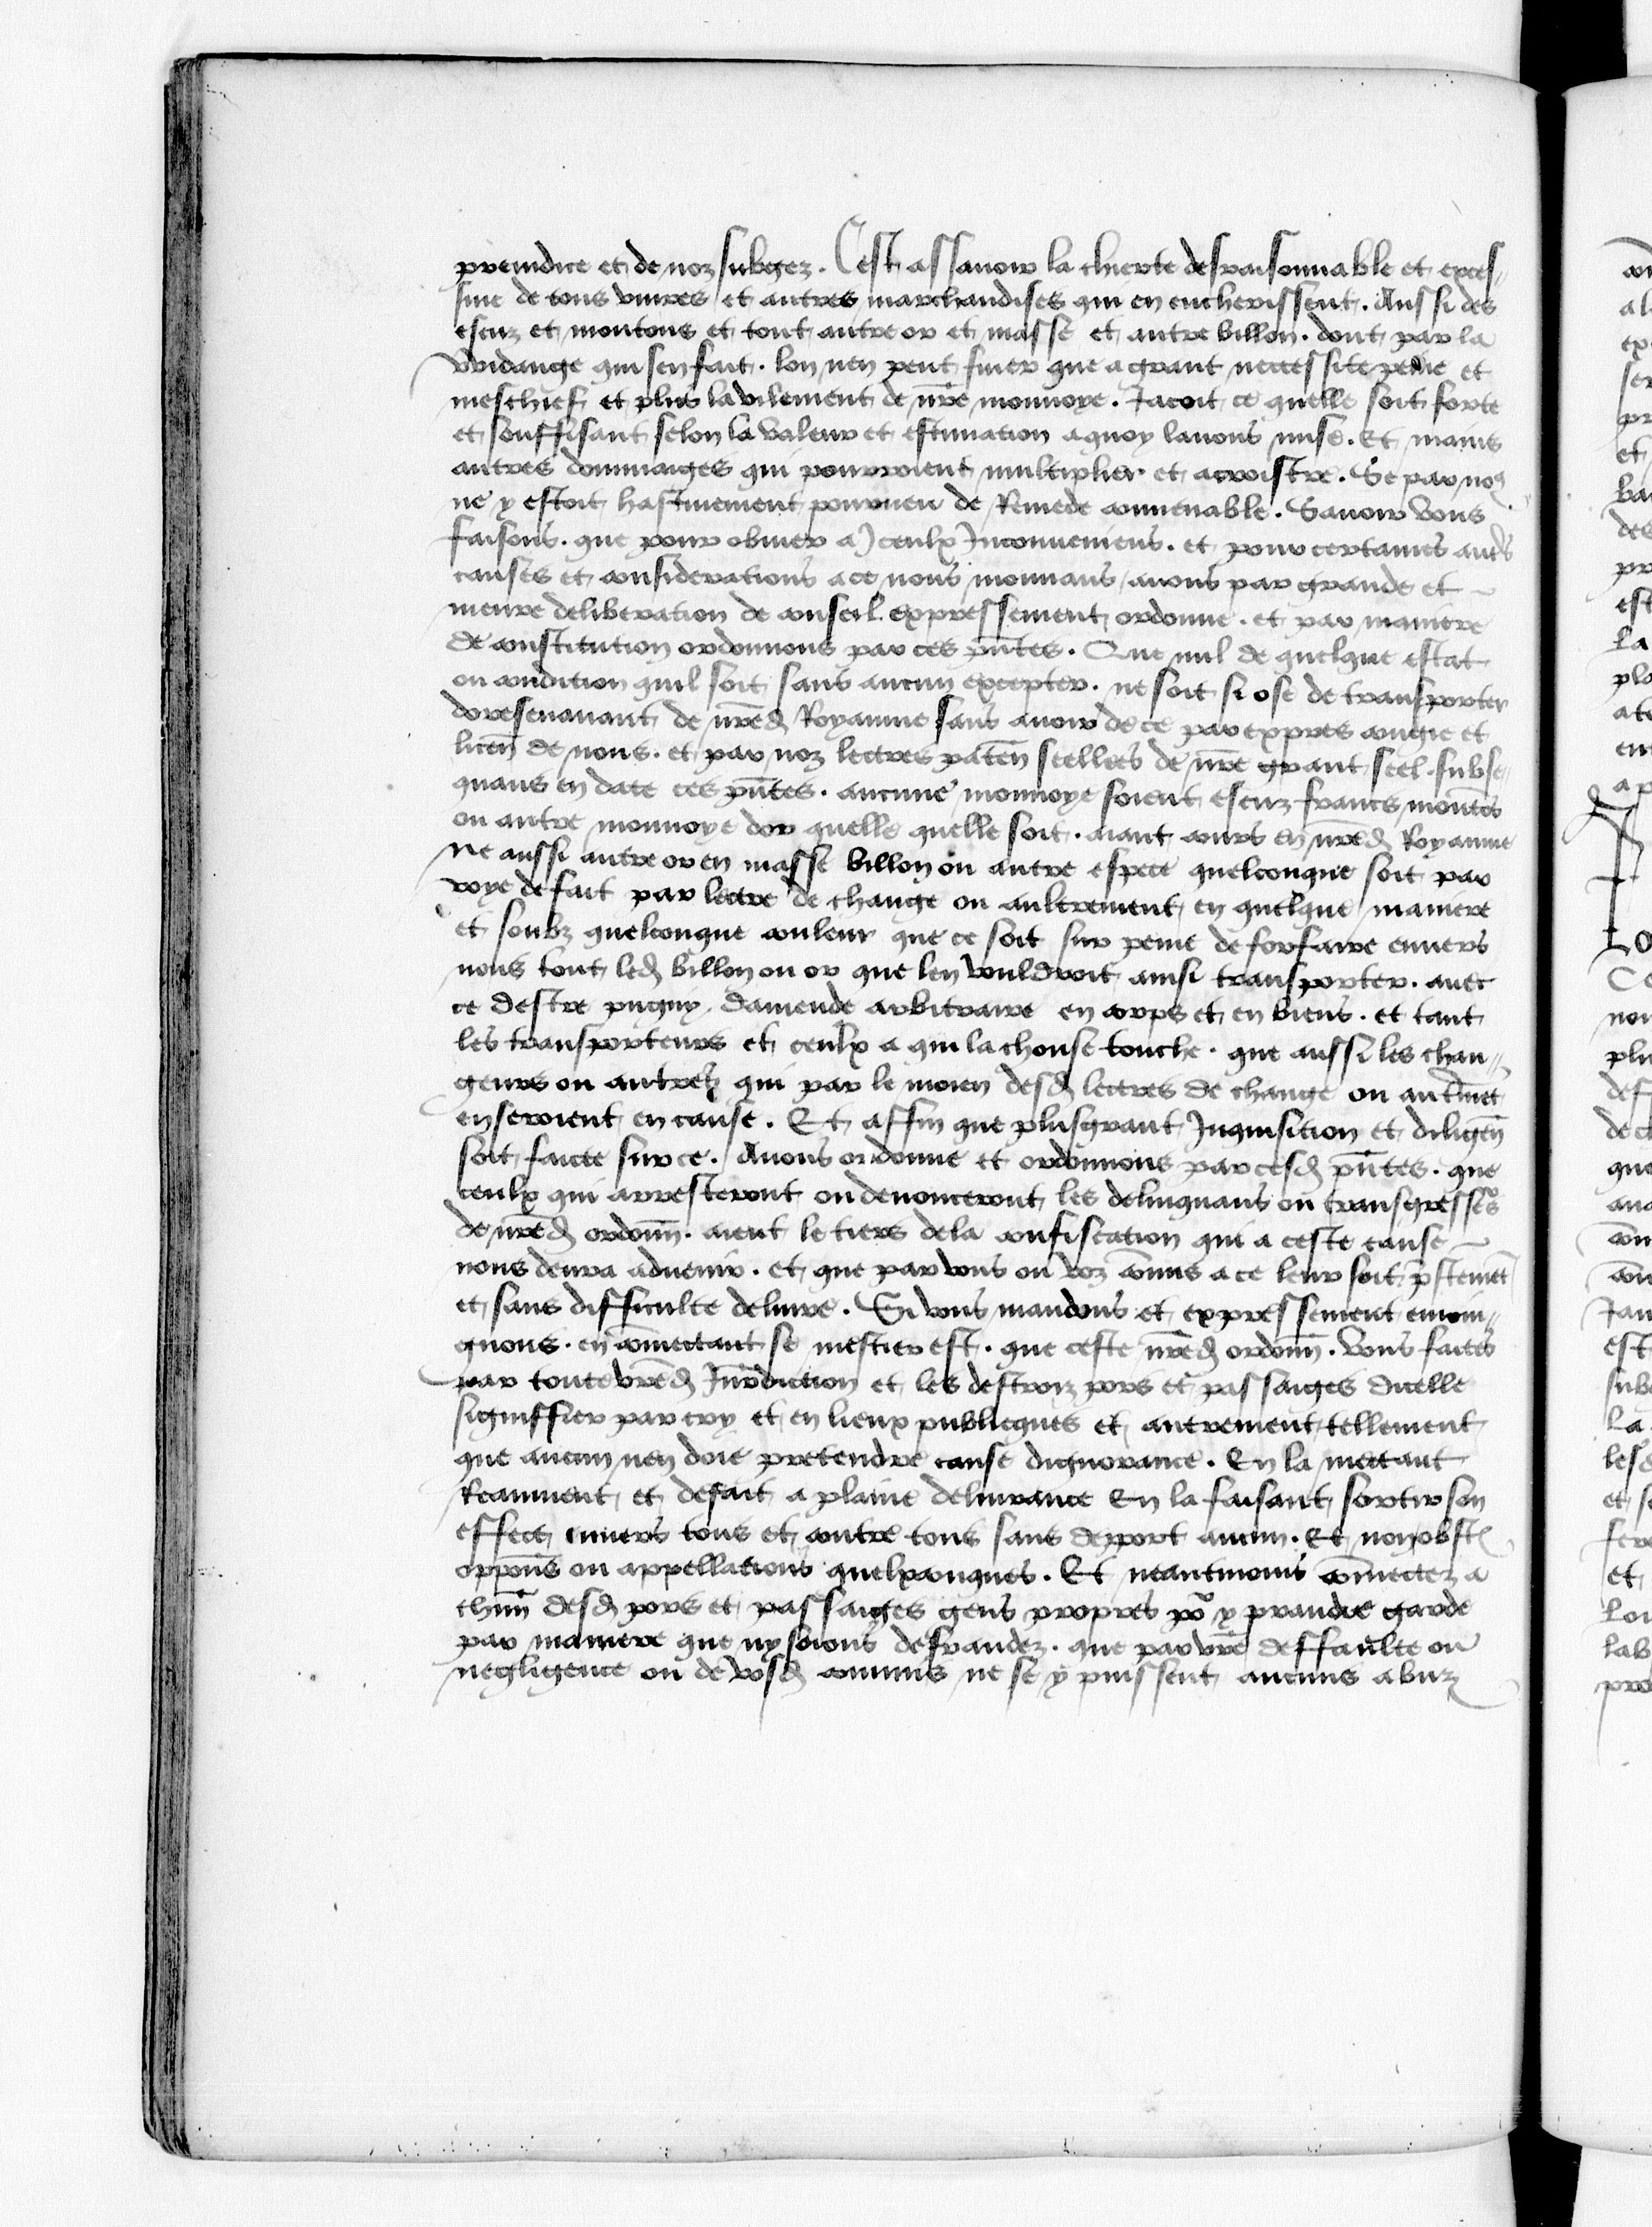 preiudice et de noz subgez. Cest assauoir la chierte desraisonnable et exces-
siue de tous viures et autres marchandises qui en encherissent. Aussi des
escuz et moutons et tout autre or et masse et autre billon. dont par la
vuidange qui sen fait. lon nen peut finer que a grant neccessite peine et
meschief et plus lauilement de nr̄e monnoye. Jacoit ce quelle soit forte
et souffisant selon la valeur et estimation a quoy lauons mise. Et mains
autres dommaiges qui pourroient multiplier et acroistre. Se par nos
ne y estoit hastiuement pourueu de Remede conuenable. Sauoir vous
faisons. que pour obuier a Jceulx Jnconueniens. et pour certaines autrs
causes et considerations a ce nous mouuans auons par grande et
meure deliberation de conseil expressement ordonne. et par maniere
de constitution ordonnons par ces pñtes. Que nul de quelque estat
ou condition quil soit sans aucun excepter. ne soit si ose de transporter
doresenauant de nr̄ed Royaume sans auoir de ce par expres congie et
licen̄ de nous. et par noz lectres paten̄ seellees de nr̄e grant seel subse-
quans en date ces pñtes. aucune monnoye soient escuz francs moutōs
ou autre monnoye dor quelle quelle soit. aiant cours en nr̄ed Royaume
Ne aussi autre or en masse billon ou autre espece quelconque soit par
voye de fait par lectre de change ou aultrement en quelque maniere
et soubz quelconque couleur que ce soit sur peine de forfaire enuers
nous tout led billon ou or que len vouldroit ainsi transporter. auec
ce destre pugny damende arbitraire en corps et en biens. et tant
les transporteurs et ceulx a qui la chouse touche. que aussi les chan-
geurs ou autres qui par le moien desd lectres de change ou autremēt
en seroient en cause. Et affin que plus grant Jnquisition et diligen̄
soit faicte sur ce. Auons ordonne et ordonnons par cesd pñtes. que
ceulx qui arresteront ou denonceront les delinquans ou transgresseˢ
de nr̄ed ordonn̄. aient le tiers de la confiscation qui a ceste cause
nous deura aduenir. et que par vous ou voz cōmis a ce leur soit pstemēt
et sans difficulte deliure. Si vous mandons et expressement enioin-
gnons. en cōmectant se mestier est. que ceste nr̄ed ordonn̄. vous faictes
par toute vr̄ed Jur̄diction et les destroiz pors et passaiges dicelle
signiffier par cry et en lieux publicques et autrement tellement
que aucun nen doie pretendre cause dignorance. En la mectant
Reaument et de fait a plaine deliurance En la faisant sortir son
effect enuers tous et contre tous sans deport aucun. Et nonobst
opposn̄s ou appellations quelxconques. Et neantmoins cōmectez a
chūn desd pors et passaiges gens propres po' y prandre garde
par maniere que ny soions defraudez. que par vr̄e deffaulte ou
negligence ou de vosd commis ne se y puissent aucuns abuz